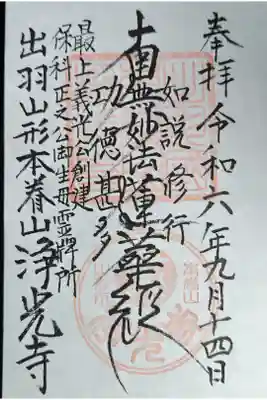 奉拝 令和六年九月十四日
如説修行
南無妙法蓮華経
功徳甚多
最上義光公創建
保科正之公御生母霊牌所
出羽山形本眷山浄光寺